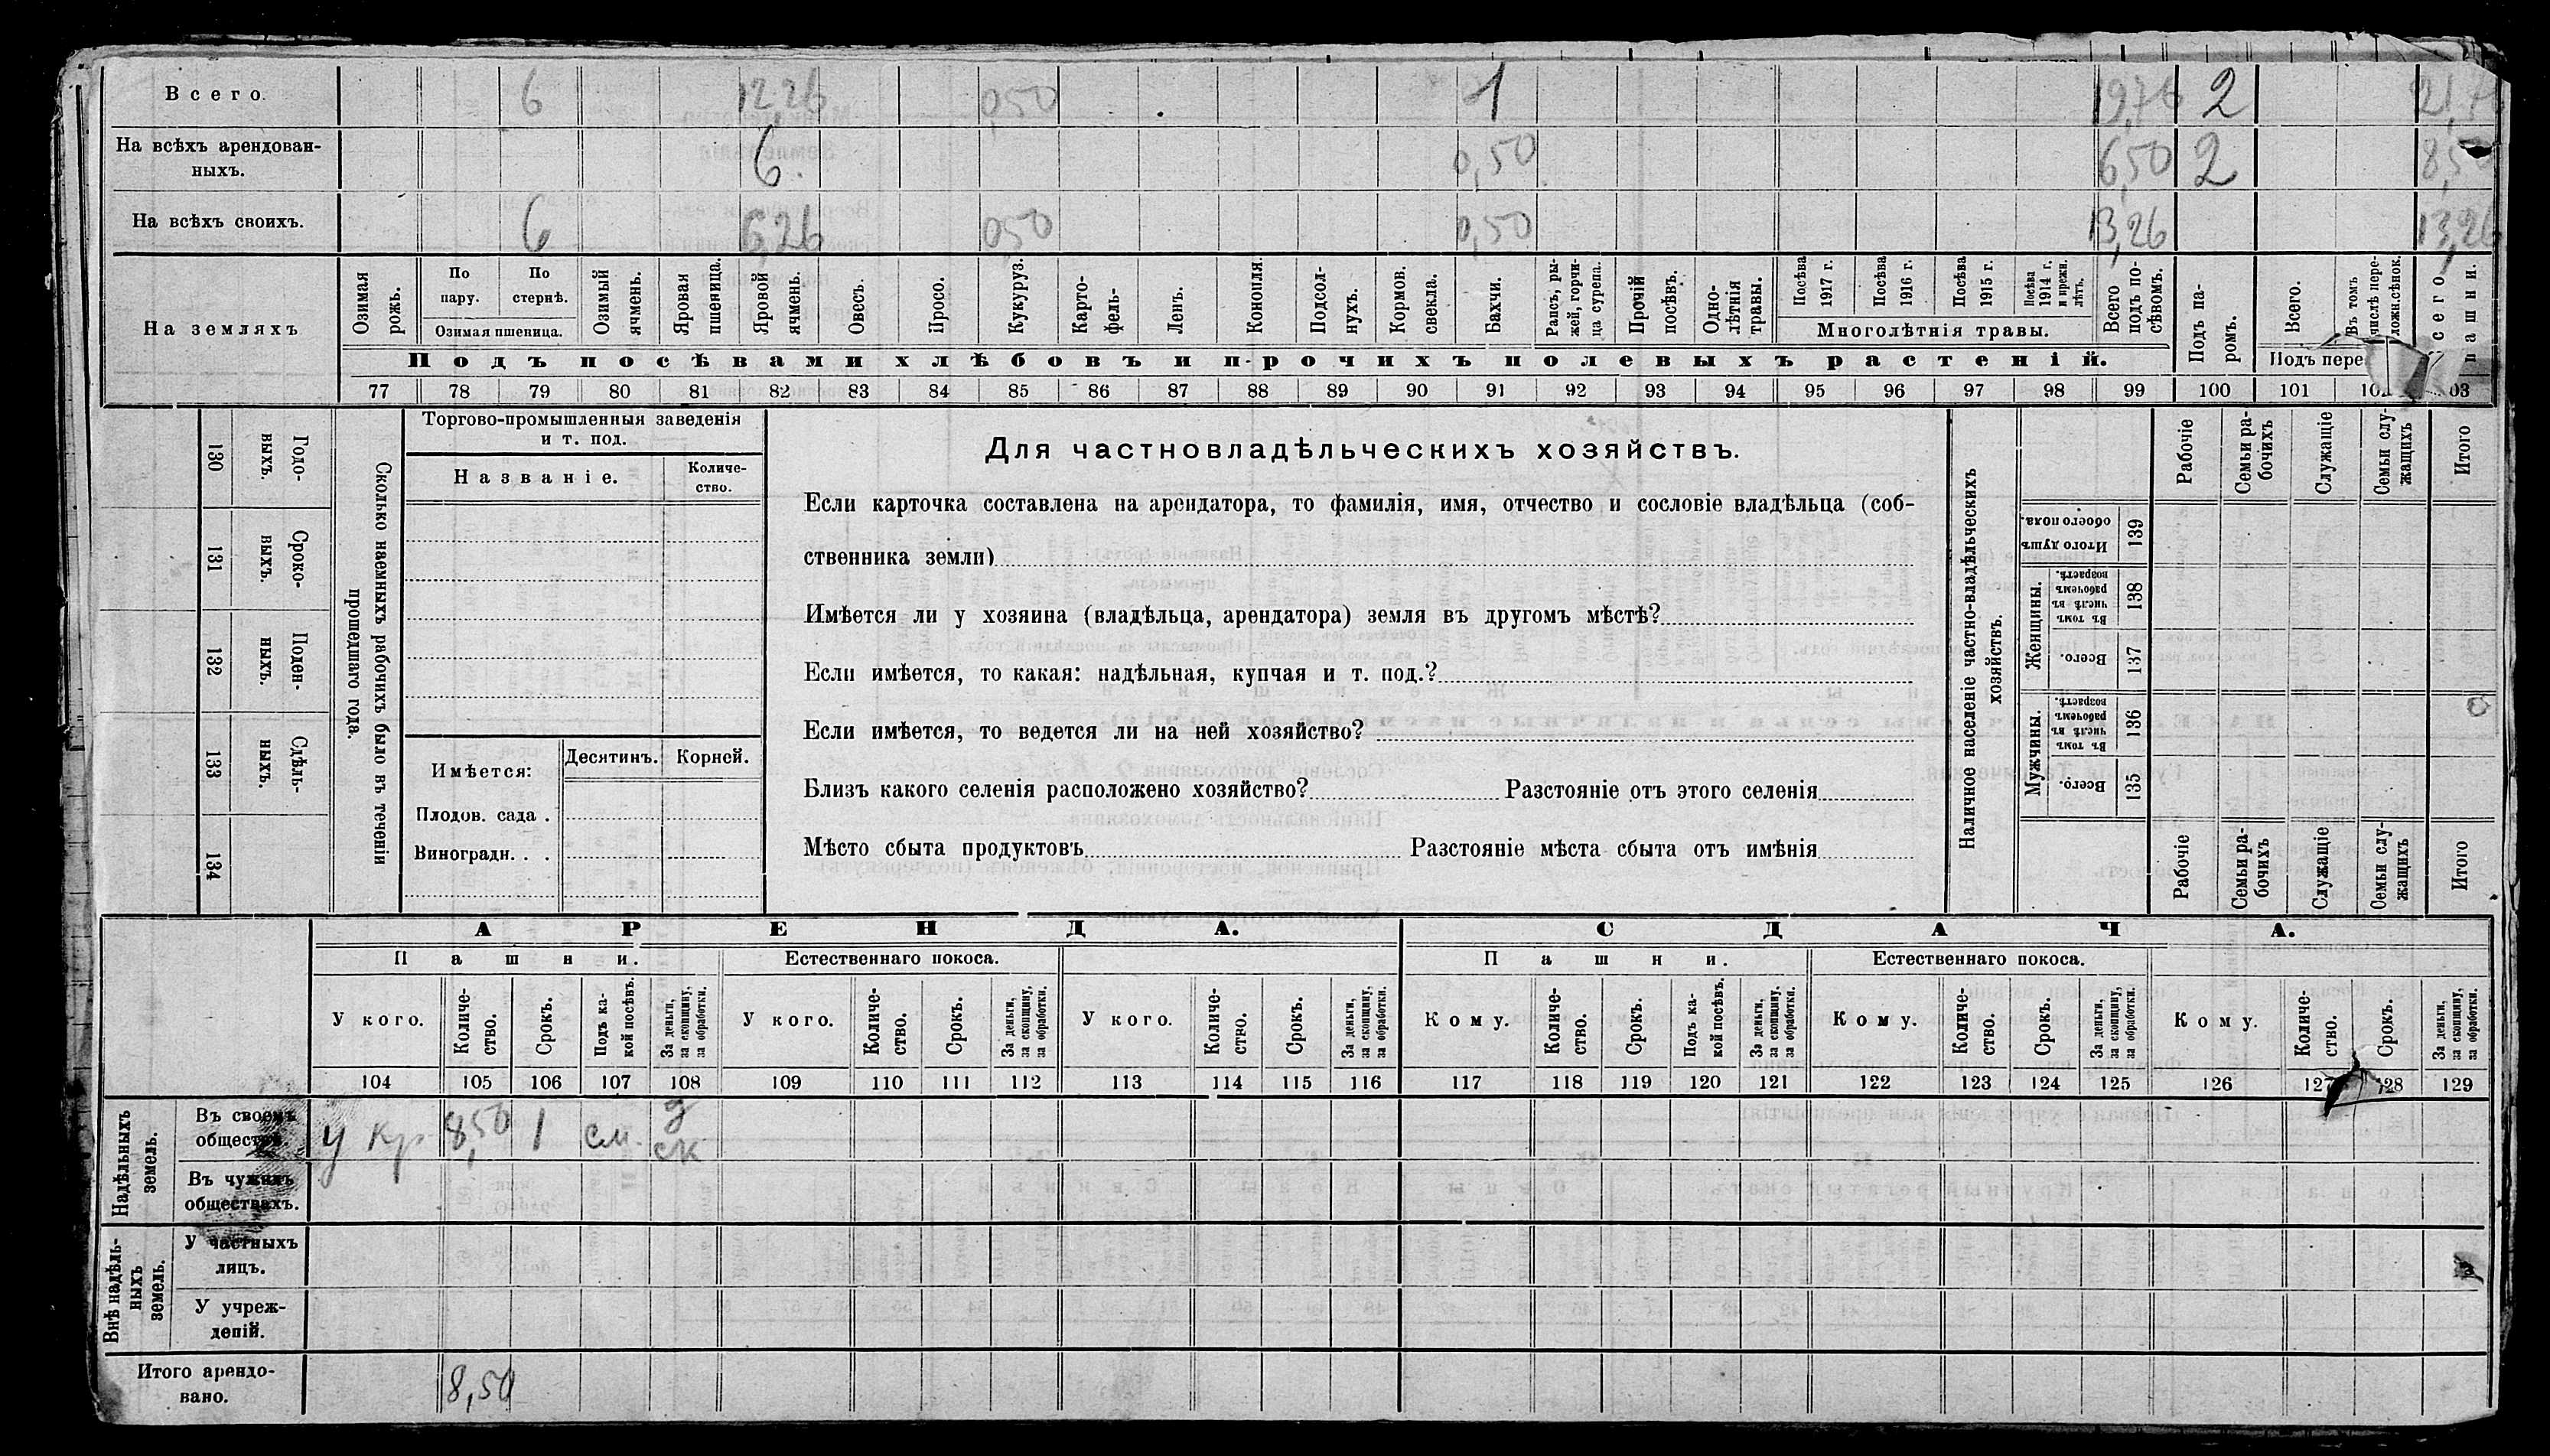 Всего. 6 12,26 0,50 1 19,76 2 21,7
На всѣхъ арендован-
ныхъ. 6. 0,50 6,50 2 8,5
На всѣхъ своихъ. 6 6,26 0,50 0,50 13,26 13,26
На земляхъ
Озимая рожь.
По пару.
По стернѣ.
Озимая пшеница.
Озимый ячмень.
Яровая пшеница.
Яровой ячмень.
Овесъ.
Просо.
Кукуруз.
Карто-
фель-
Ленъ.
Конопля.
Подсол-
нухъ.
Кормов.
свекла.
Бахчи.
Рапсъ, ры-
жей, горчи-
ца сурепа.
Прочій
посѣвъ.
Одно-
лѣтнія
травы.
Посѣва
1917 г.
Посѣва
1916 г.
Посѣва
1915 г.
Посѣва
1914 г.
и прежн.
лѣтъ.
Многолѣтнія травы.
Всего
подъ по-
сѣвомъ.
Подъ па-
ромъ.
Всего.
Въ томъ
числѣ пере-
лож.сѣнок.
Подъ пере
пашни.
Подъ посѣвами хлѣбовъ и прочихъ полевыхъ растеній.
77 78 79 80 81 82 83 84 85 86 87 88 89 90 91 92 93 94 95 96 97 98 99 100 101 03
130 Годо-
выхъ.
131 Сроко-
выхъ.
132 Поден-
ныхъ.
133 Сдѣль-
ныхъ.
134
Сколько наемныхъ рабочихъ было въ теченіи
прошедшаго года.
Торгово-промышленныя заведенія
и т. под.
Названіе.
Количе-
ство.
Имѣется:
Десятинъ. Корней.
Плодов. сада .
Виноградн. . .
Для частновладѣльческихъ хозяйствъ.
Если карточка составлена на арендатора, то фамилія, имя, отчество и сословіе владѣльца (соб-
ственника земли)
Имѣется ли у хозяина (владѣльца, арендатора) земля въ другомъ мѣстѣ?
Если имѣется, то какая: надѣльная, купчая и т. под.?
Если имѣется, то ведется ли на ней хозяйство?
Близъ какого селенія расположено хозяйство? Разстояніе отъ этого селенія
Мѣсто сбыта продуктовъ Разстояніе мѣста сбыта отъ имѣнія
Наличное населеніе частно-владѣльческихъ
хозяйствъ.
Рабочіе
Семьи ра-
бочихъ
Служащіе
Семьи слу-
жащихъ
Итого
Итого душъ
обоего пола.
139
Женщины.
Въ томъ
числѣ въ
рабочемъ
возрастѣ.
138
Всего.
137
Мужчины.
Въ томъ
числѣ въ
рабочемъ
возрастѣ.
136
Всего.
135
Рабочіе
Семьи ра-
бочихъ
Служащіе
Семьи слу-
жащихъ
Итого
АРЕНДА. СДАЧА.
Пашни. Естественнаго покоса. Пашни. Естественнаго покоса.
У кого.
Количе-
ство.
Срокъ.
Подъ ка-
кой посѣвъ.
За деньги,
за скопщину,
за обработки.
У кого.
Количе-
ство.
Срокъ.
За деньги,
за скопщину,
за обработки.
У кого.
Количе-
ство.
Срокъ.
За деньги,
за скопщину,
за обработки.
Кому.
Количе-
ство.
Срокъ.
Подъ ка-
кой посѣвъ.
За деньги,
за скопщину,
за обработки.
Кому.
Количе-
ство.
Срокъ.
За деньги,
за скопщину,
за обработки.
Кому.
Количе-
ство.
Срокъ.
За деньги,
за скопщину,
за обработки.
104 105 106 107 108 109 110 111 112 113 114 115 116 117 118 119 120 121 122 123 124 125 126 127 128 129
Надѣльныхъ
земель.
Въ своемъ
обществѣ. у кр 8,50 1 см. д
ск
Въ чужихъ
обществахъ.
Внѣ надѣль-
ныхъ
земель.
У частныхъ
лицъ.
У учреж-
деній.
Итого арендо-
вано. 8,50